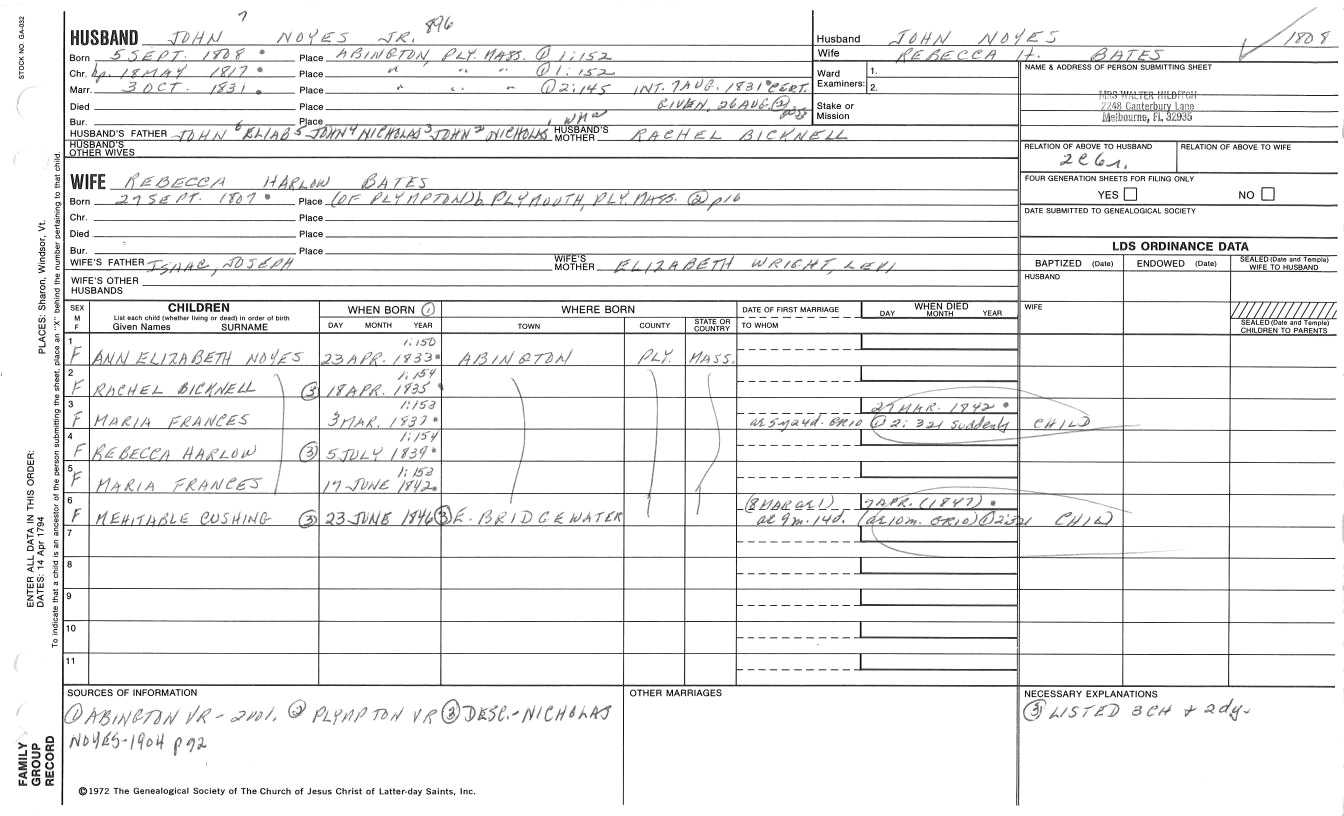 STOCK NO. GA-032
7
896
HUSBAND JOHN NOYES JR.
Born 5 SEPT. 1808 • Place ABINGTON, PLY. MASS. ① 1:152
Chr. bp. 18 MAY 1817 • Place " " " ① 1:152
Marr. 3 OCT. 1831 • Place " " " ① 2:145 INT. 7 AUG. 1831 • CERT.
Died Place GIVEN. 26 AUG. ②
Bur. Place
HUSBAND'S FATHER JOHN 6 ELIAB 5 JOHN 4 NICHOLAS 3 JOHN 2 NICHOLAS 1 HUSBAND'S MOTHER RACHEL BICKNELL
HUSBAND'S OTHER WIVES
WIFE REBECCA HARLOW BATES
Born 27 SEPT. 1807 • Place (OF PLYMPTON) b. PLYMOUTH, PLY. MASS. ② p10
Chr. Place
Died Place
Bur. Place
WIFE'S FATHER ISAAC, JOSEPH WIFE'S MOTHER ELIZABETH WRIGHT, LEVI
WIFE'S OTHER HUSBANDS
Husband JOHN NOYES 1808
Wife REBECCA H. BATES
Ward Examiners: 1.
2.
Stake or Mission
NAME & ADDRESS OF PERSON SUBMITTING SHEET
MRS WALTER
2248 Canterbury Lane
Melbourne, FL 32935
RELATION OF ABOVE TO HUSBAND RELATION OF ABOVE TO WIFE
2C6r.
FOUR GENERATION SHEETS FOR FILING ONLY
YES NO
DATE SUBMITTED TO GENEALOGICAL SOCIETY
LDS ORDINANCE DATA
BAPTIZED (Date) ENDOWED (Date) SEALED (Date and Temple) WIFE TO HUSBAND
HUSBAND
WIFE
SEALED (Date and Temple) CHILDREN TO PARENTS
SEX M F
CHILDREN
List each child (whether living or dead) in order of birth
Given Names SURNAME
WHEN BORN ①
DAY MONTH YEAR
WHERE BORN
TOWN COUNTY STATE OR COUNTRY
DATE OF FIRST MARRIAGE
TO WHOM
WHEN DIED
DAY MONTH YEAR
1:150
1 F ANN ELIZABETH NOYES 23 APR. 1833 • ABINGTON PLY. MASS.
1:154
2 F RACHEL BICKNELL ③ 18 APR. 1835 •
1:153 27 MAR. 1842 •
3 F MARIA FRANCES 3 MAR. 1837 • ae 5y 24d. GR10 ① 2:321 Suddenly CHILD
1:154
4 F REBECCA HARLOW ③ 5 JULY 1839 •
1:153
5 F MARIA FRANCES 17 JUNE 1842 •
(8 MAR GR1) 7 APR. (1847) •
6 F MEHITABLE CUSHING ③ 23 JUNE 1846 ③ E. BRIDGEWATER ae 9m. 14d. (ae 10m. GR10) ① 2:321 CHILD
7
8
9
10
11
SOURCES OF INFORMATION
① ABINGTON VR - 2vol. ② PLYMPTON VR ③ DESC. - NICHOLAS
NOYES - 1904 p 92
OTHER MARRIAGES
NECESSARY EXPLANATIONS
③ LISTED 3 CH + 2 dy.
©1972 The Genealogical Society of The Church of Jesus Christ of Latter-day Saints, Inc.
FAMILY GROUP RECORD
ENTER ALL DATA IN THIS ORDER:
DATES: 14 Apr 1794
PLACES: Sharon, Windsor, Vt.
To indicate that a child is an ancestor of the person submitting the sheet, place an "X" behind the number pertaining to that child.